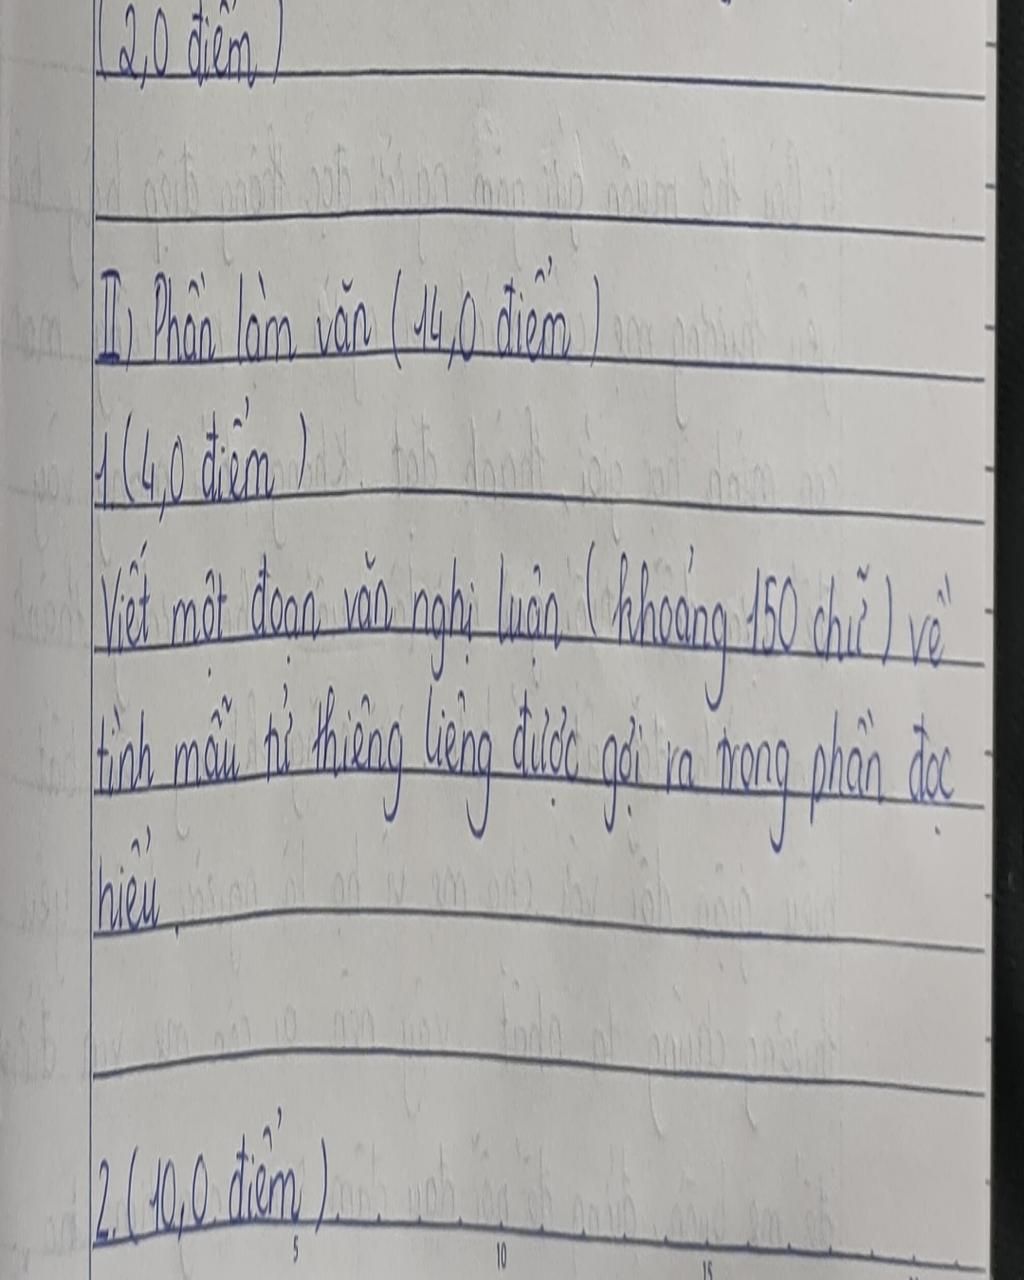 (2,0 điểm)
II) Phần làm văn (14,0 điểm)
1 (4,0 điểm)
Viết một đoạn văn nghị luận (khoảng 150 chữ) về
tình mẫu tử thiêng liêng được gợi ra trong phần đọc
hiểu.
2. (10,0 điểm)
5 10 15